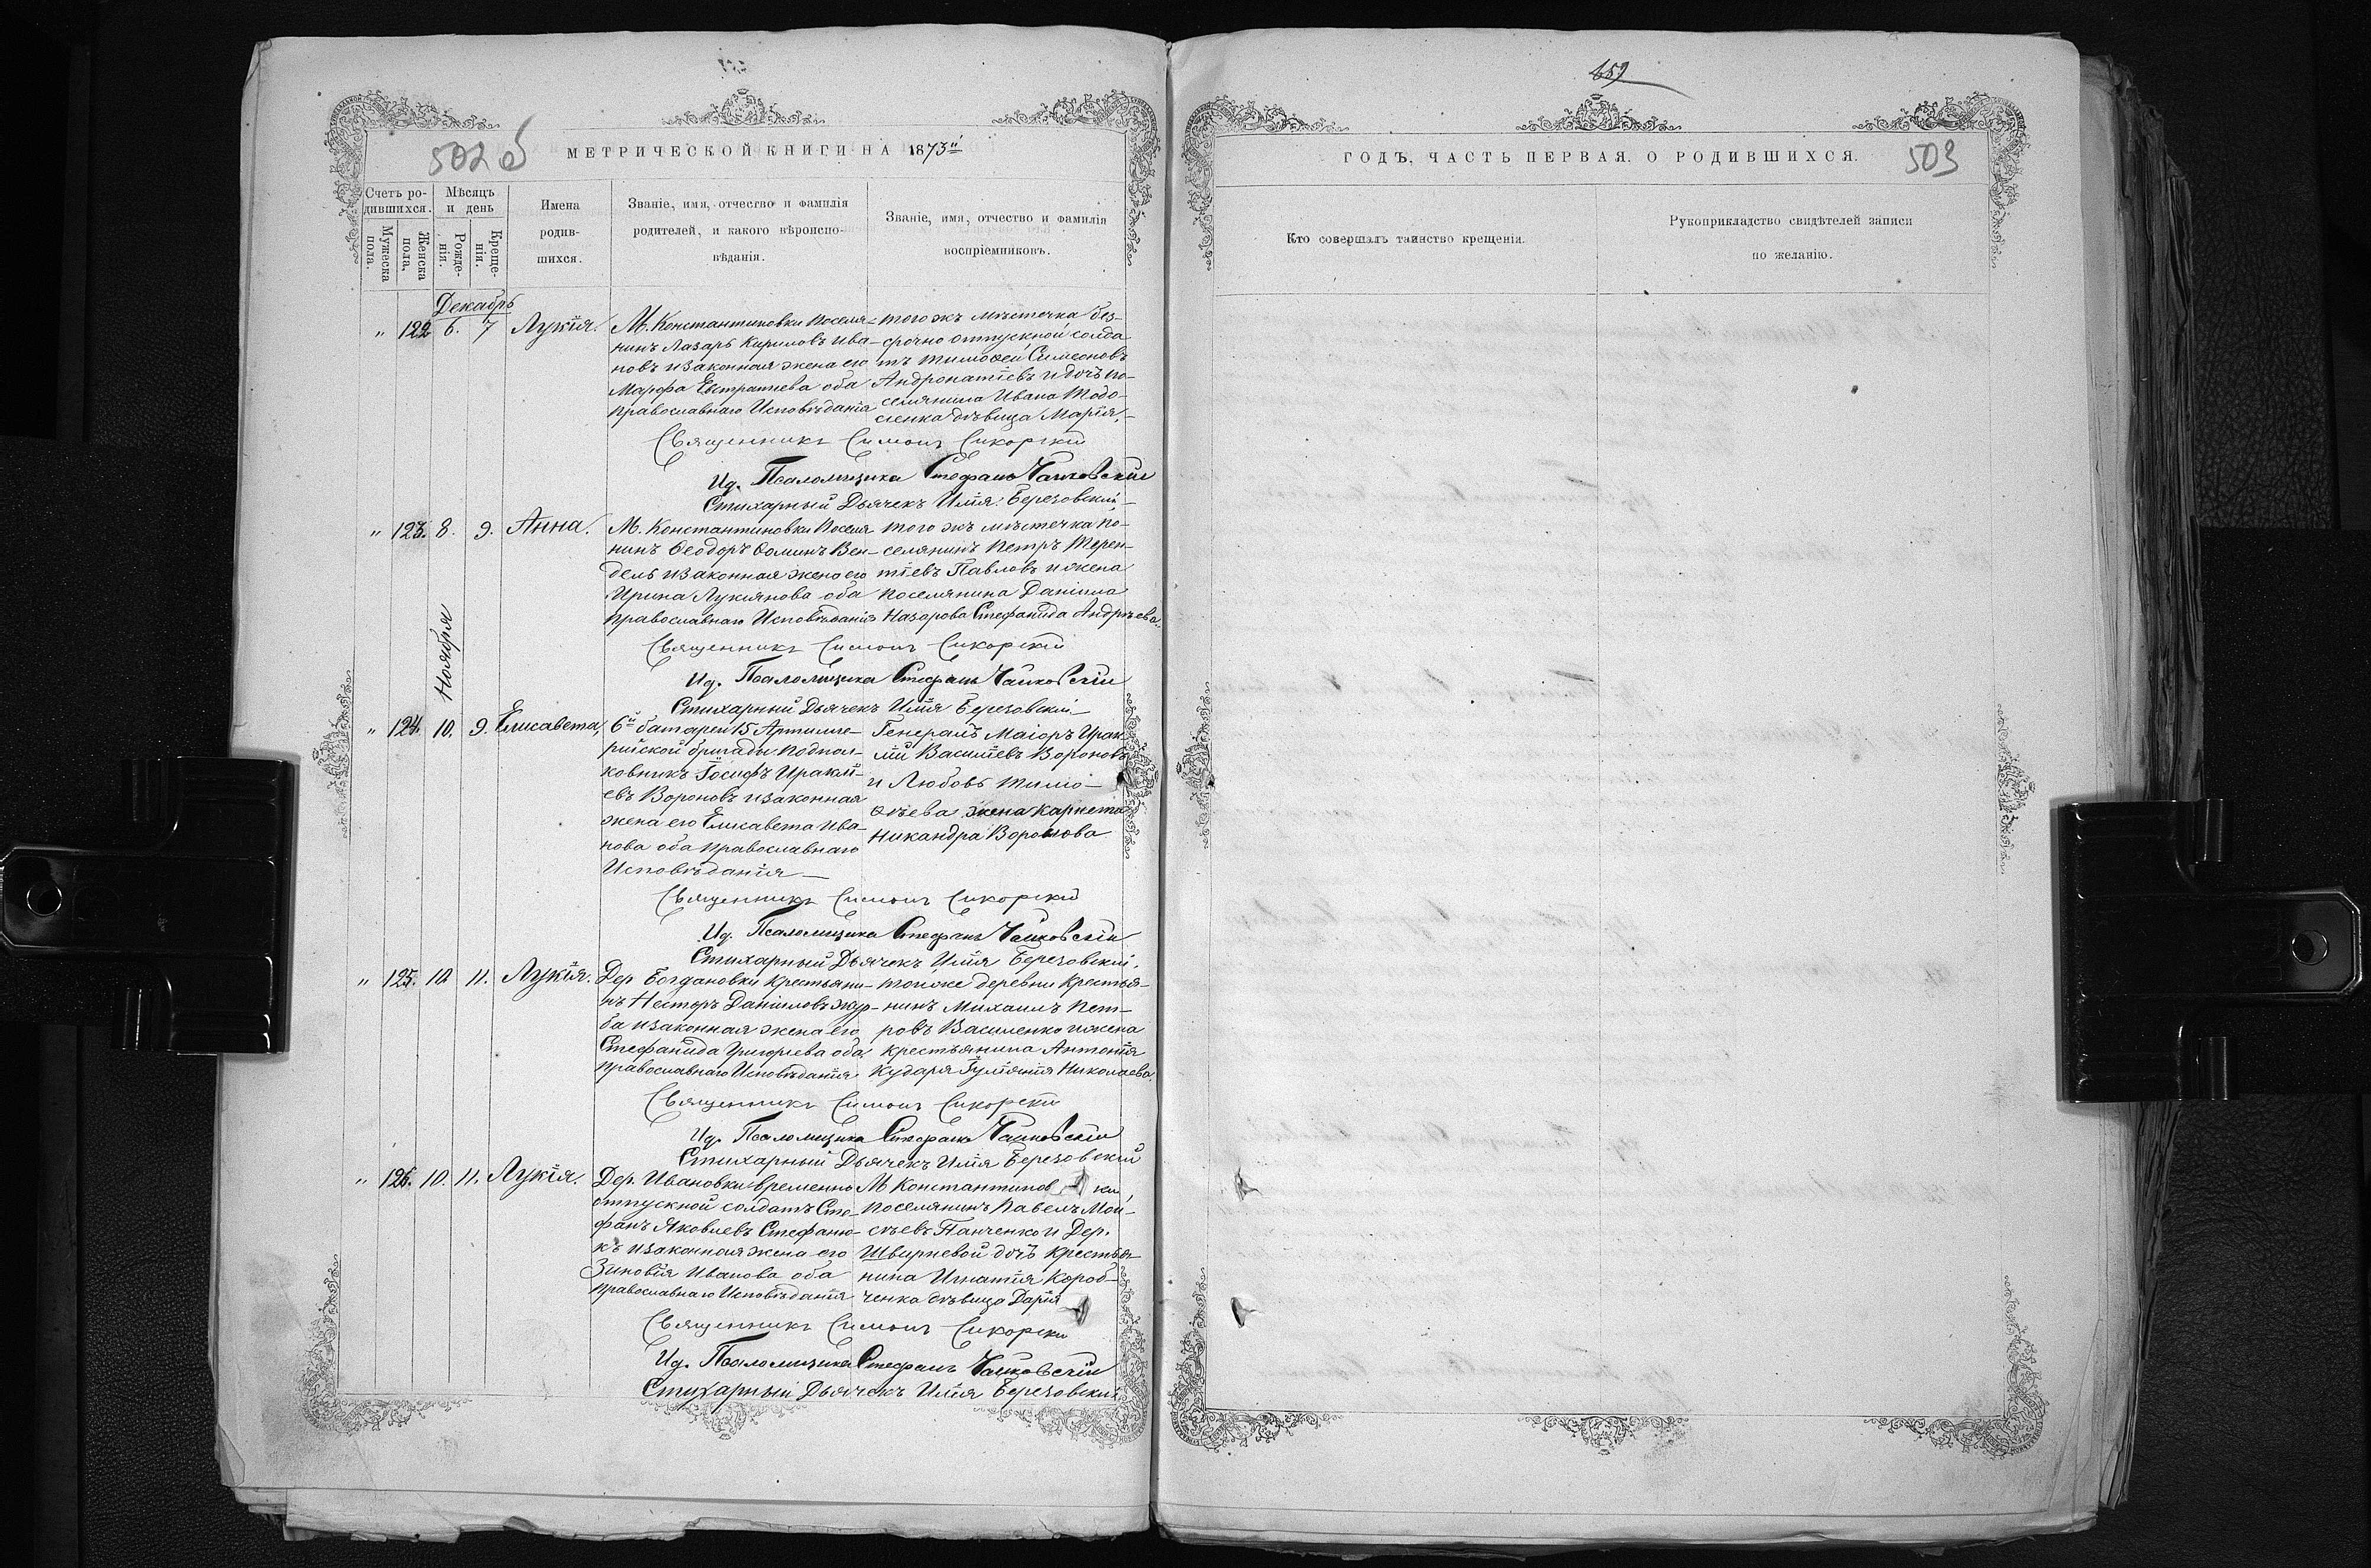 502 б
МЕТРИЧЕСКОЙ КНИГИ НА 1873й
Счетъ ро-
дившихся.
Мужеска пола.
Женска пола.
Мѣсяцъ
и день
Рожде-
нія.
Креще-
нія.
Имена
родив-
шихся.
Званіе, имя, отчество и фамилія
родителей, и какого вѣроиспо-
вѣданія.
Званіе, имя, отчество и фамилія
воспріемниковъ.
Декабрь
" 122 6. 7 Лукія.
М. Константиновки поселя-
нинъ Лазарь Кириловъ Ива-
новъ и законная жена его
Марфа Евстратіева оба
православнаго Исповѣданія
того жъ мѣстечка без-
срочно отпускной солда
тъ Тимоѳей Симеоновъ
Андропатіевъ и дочь по-
селянина Ивана Тодо-
сіенка дѣвица Марія.
Священникъ Симонъ Сикорскій
Ид. Псаломщика Стефанъ Чайковскій
Стихарный Дьячекъ Илія Березовскій
" 123. 8. 9. Анна.
М. Константиновки поселя
нинъ Ѳеодоръ Ѳоминъ Вен-
дель и законная жена его
Ирина Лукіянова оба
православнаго Исповѣданія
того жъ мѣстечка по-
селянинъ Петръ Терен-
тіевъ Павловъ и жена
поселянина Даніила
Назарова Стефанида Андрѣева.
Священникъ Симонъ Сикорскій
Ид. Псаломщика Стефанъ Чайковскій
Стихарный Дьячекъ Илія Березовскій
Ноября
" 124. 10. 9. Елисавета,
6й батареи 15 Артилле-
рійской бригады подпол-
ковникъ Іосифъ Ираклі-
евъ Вороновъ и законная
жена его Елисавета Ива-
нова оба православнаго
Исповѣданія
Генералъ Маіоръ Ирак
лій Василіевъ Вороновъ
и Любовь Тимо-
ѳѣева жена Карнета
Никандра Воронова
Священникъ Симонъ Сикорскій
Ид. Псаломщика Стефанъ Чайковскій
Стихарный Дьячекъ Илія Березовскій.
" 125. 10. 11. Лукія.
Дер. Богдановки крестьяни-
нъ Несторъ Даніиловъ Жур-
ба и законная жена его
Стефанида Григоріева оба
православнаго Исповѣданія
той же деревни крестья-
нинъ Михаилъ Пет-
ровъ Василенко и жена
крестьянина Антонія
Кударя Іуліянія Николаева.
Священникъ Симонъ Сикорскій
Ид. Псаломщика Стефанъ Чайковскій
Стихарный Дьячекъ Илія Березовскій
" 126. 10. 11. Лукія.
Дер. Ивановки временно
отпускной солдатъ Сте-
фанъ Яковлевъ Стефаню-
къ и законная жена его
Зиновія Иванова оба
православнаго Исповѣданія
М Константинов ки
поселянинъ Павелъ Мой-
сѣевъ Панченко и Дер.
Швыревой дочь крестья-
нина Игнатія Короб-
ченка дѣвица Дарія
Священникъ Симонъ Сикорскій
Ид. Псаломщика Стефанъ Чайковскій
Стихарный Дьячекъ Илія Березовскій
659
ГОДЪ, ЧАСТЬ ПЕРВАЯ. О РОДИВШИХСЯ.
503
Кто совершалъ таинство крещенія.
Рукоприкладство свидѣтелей записи
по желанію.